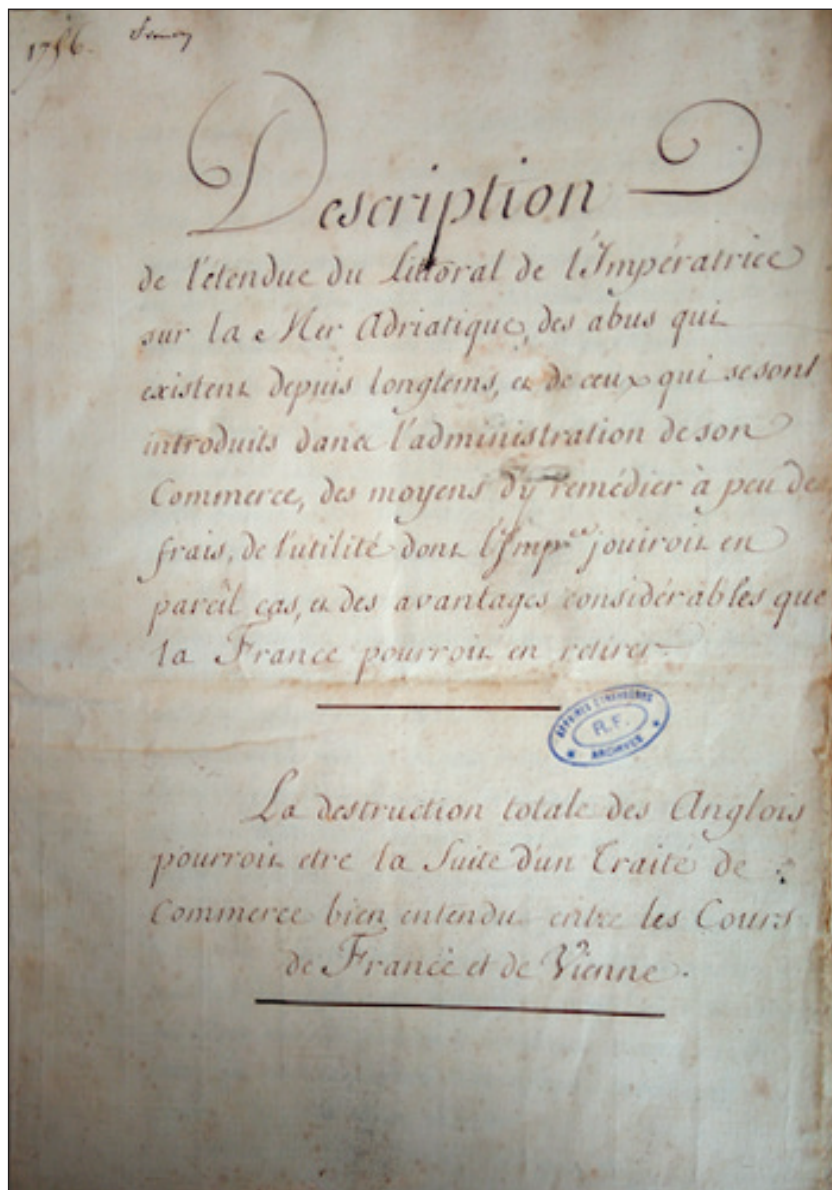 1756.
Description
de l'étendue du Littoral de l'Impératrice
sur la Mer Adriatique, des abus qui
existent depuis longtems, et de ceux qui se sont
introduits dans l'administration de son
Commerce, des moyens d'y remédier à peu de
frais, de l'utilité dont l'Imp.ce jouiroit en
pareil cas, et des avantages considérables que
la France pourroit en retirer.
AFFAIRES ETRANGERES
R.F.
ARCHIVES
La destruction totale des Anglois
pourroit etre la Suite d'un Traité de
Commerce bien entendu entre les Cours
de France et de Vienne.